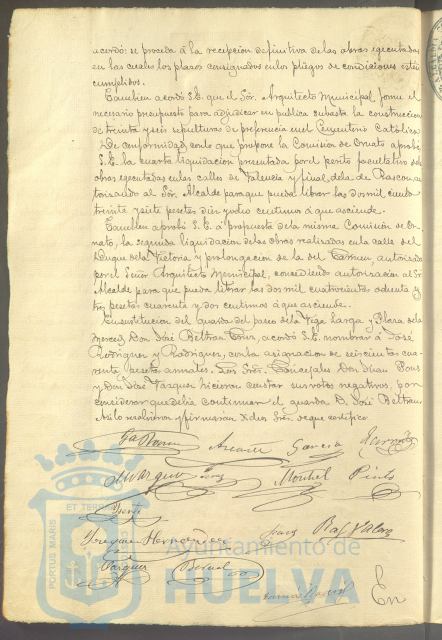 acordó se proceda á la recepcion definitiva de las obras ejecutadas
en las cuales los plazos consignados en los pliegos de condiciones estén
cumplidos.
Tambien acordó S.E. que el Sör. Arquitecto Municipal forme el
necesario presupuesto para adjudicar en publica subasta la construccion
de treinta y seis sepulturas de preferencia en el Cementerio Católico.
De conformidad con lo que propone la Comision de Ornato aprobó
S.E. la cuarta liquidacion presentada por el perito facultativo de
obras ejecutadas en las calles de Valencia y final de la de Rascon, au
torizando al Sör. Alcalde para que pueda librar las dos mil ciento
treinta y siete pesetas diez y ocho centimos á que asciende.
Tambien aprobó S.E. á propuesta de la misma Comision de Or-
nato, la segunda liquidacion de las obras realizadas en la calle del
Duque de la Victoria y prolongacion de la del Carmen, autorizada
por el Señor Arquitecto Municipal, concediendo autorizacion al Sr.
Alcalde para que pueda librar las dos mil cuatrocientas ochenta y
tres pesetas cuarenta y dos centimos á que asciende.
En sustitucion del guarda del paseo de la Vega Larga y Plaza de la
Merced, Don José Beltran Cruz, acordó S.E. nombrar á José
Rodriguez y Rodriguez, con la asignacion de seiscientas cua
renta pesetas anuales. Los Sres. Concejales Don Juan Pons
y Don José Vazquez hicieron constar sus votos negativos, por
considerar que debia continuar el guarda D. José Beltran
Asi lo resolvieron y firmaran dichos Sres. de que certifico.
Garcia
Marquez Montiel Pinto
Joaquin Hernandez
Vazquez Bernal
En
PORTUS MARIS
ET TERRAE
Ayuntamiento de
HUELVA